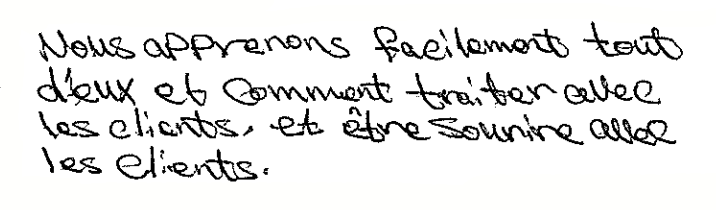 Nous apprenons facilement tout
d'eux et comment traiter avec
les clients, et être sourire avec
les clients.